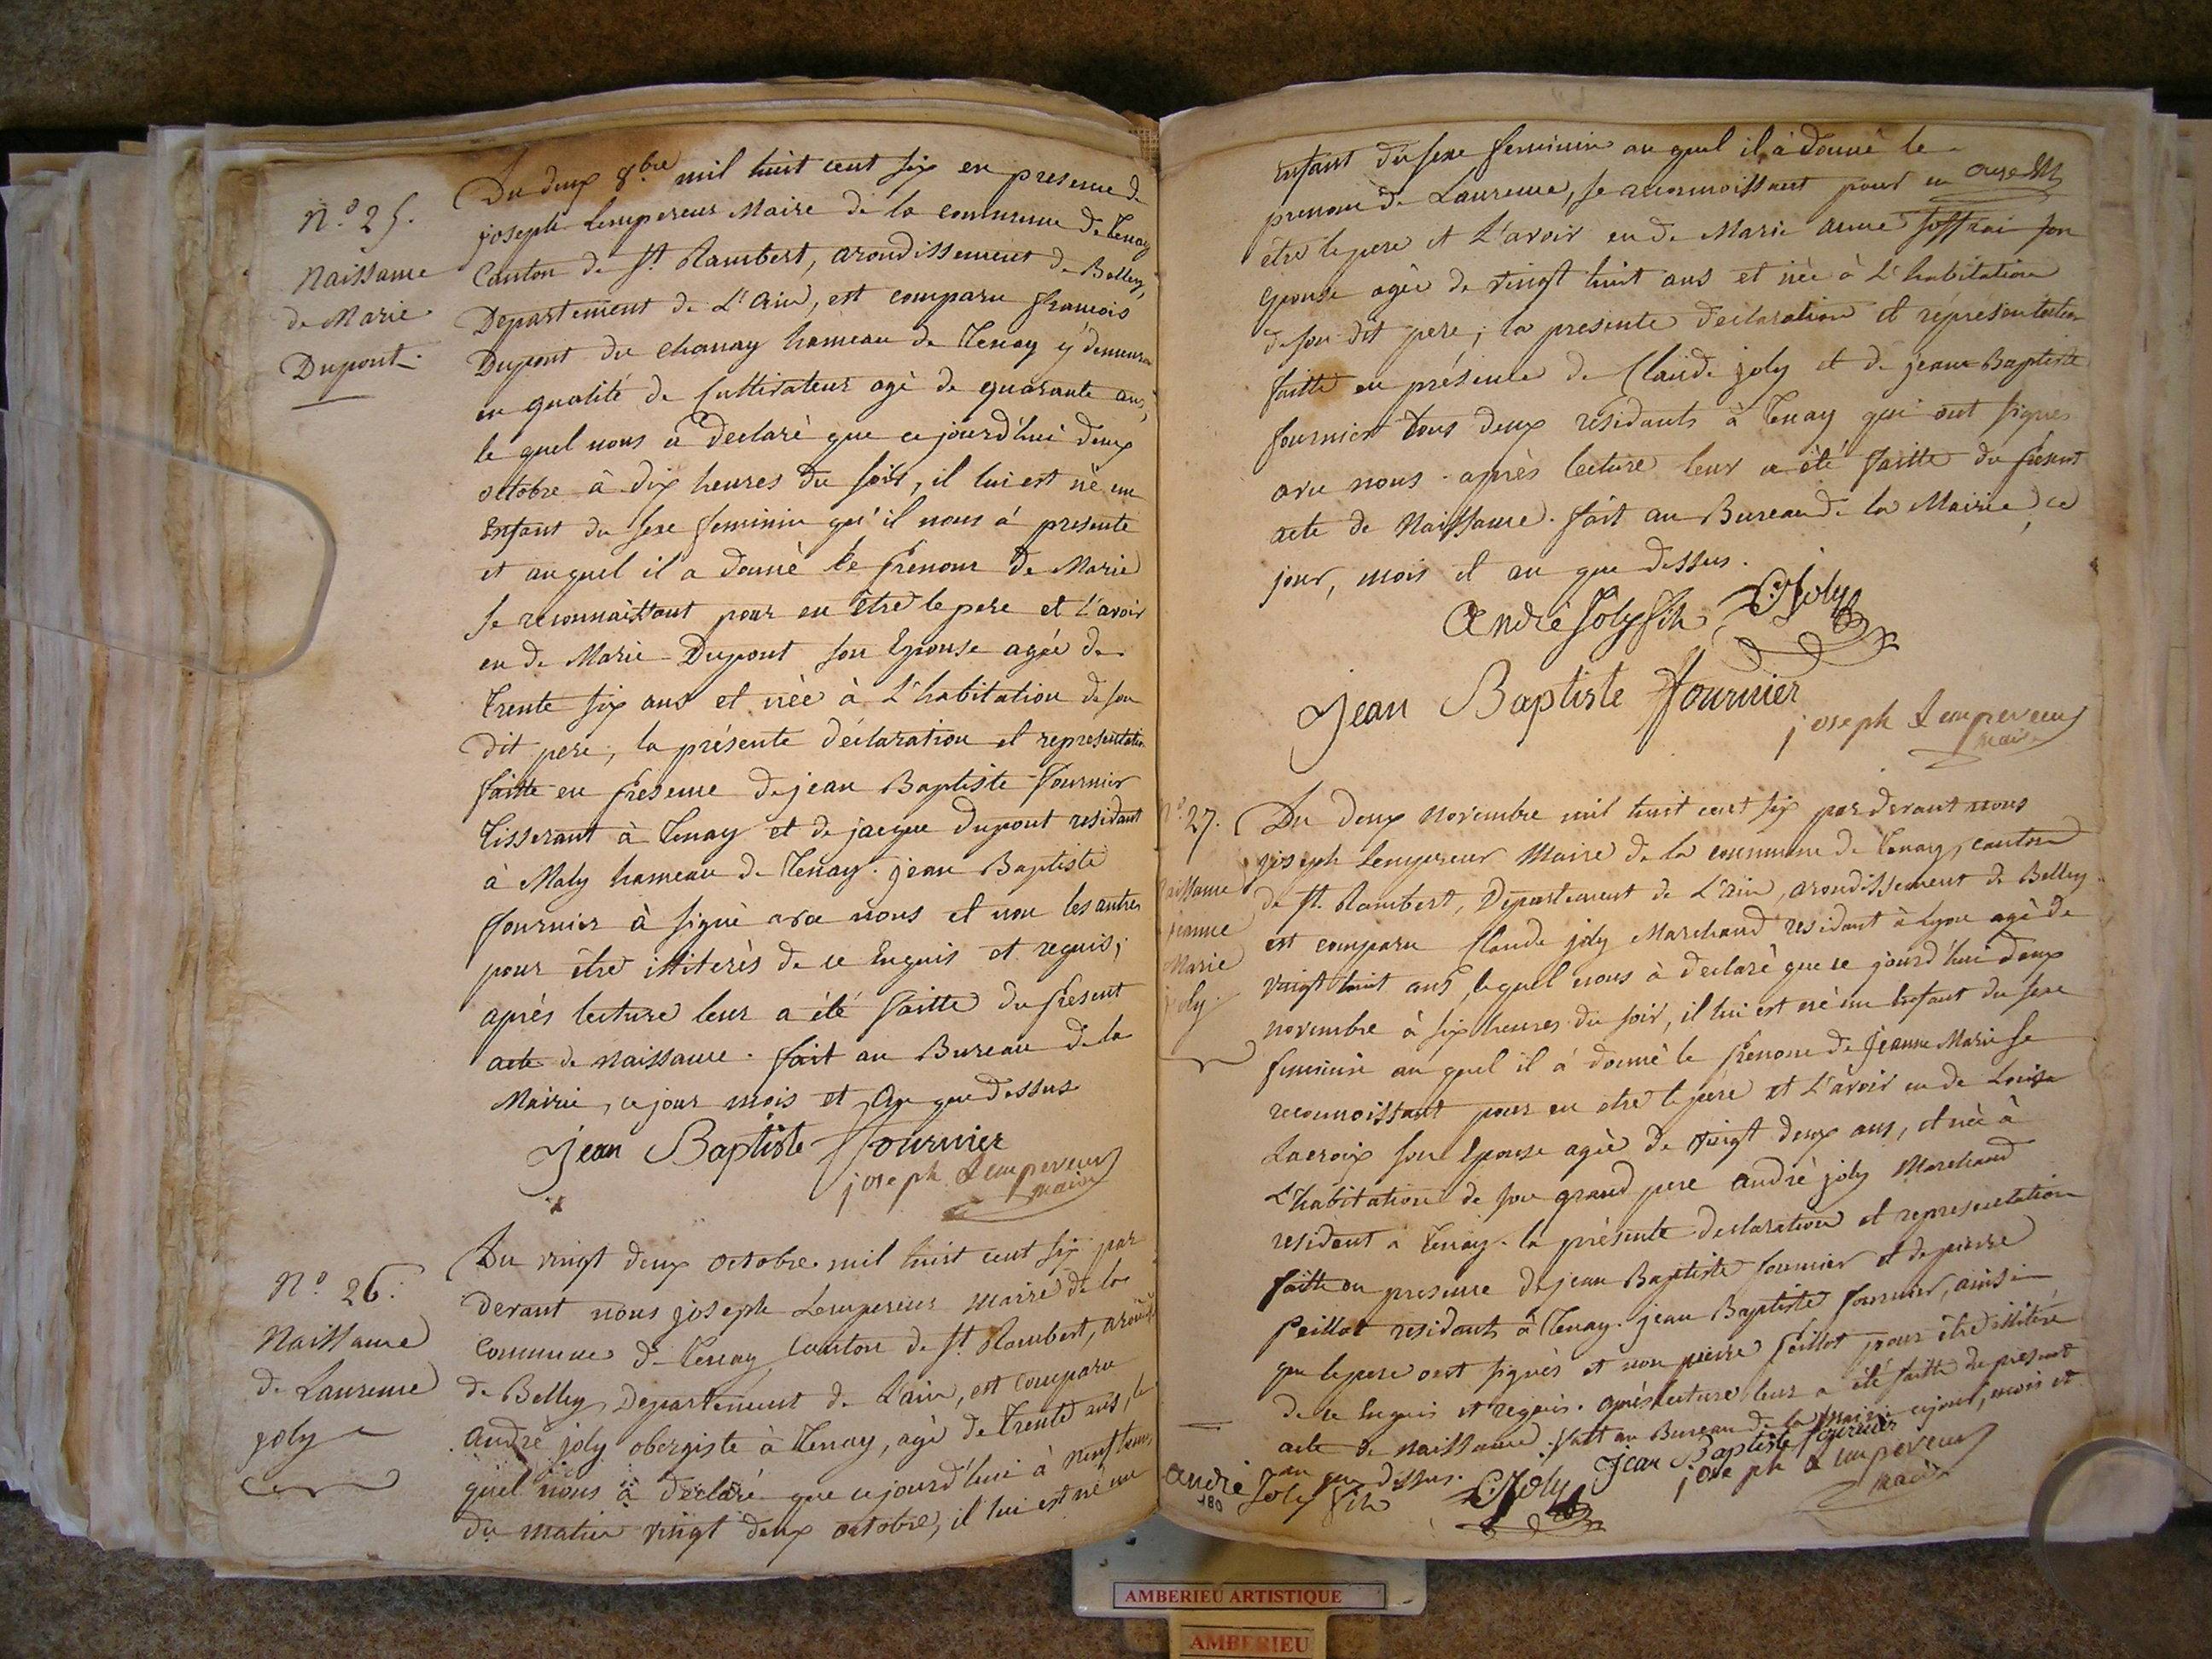 N.° 25.
Naissance
de Marie
Dupont.
Du deux 8.bre mil huit cent six en presence de
joseph Lempereur Maire de la commune de Tenay
Canton de St. Rambert, arondissement de Belley,
Departement de L'ain, est comparu francois
Dupont du chanay hameau de Tenay y demeurant
en qualité de Cultivateur agé de quarante ans,
le quel nous a declaré que cejourd'hui deux
octobre à dix heures du soir, il lui est né un
Enfant du sexe feminin qu'il nous à presenté
et auquel il a donné le prenom de Marie
se reconnaissant pour en être le pere et L'avoir
eu de Marie Dupont son Epouse agée de
trente six ans et née à L'habitation de son
dit pere, la présente déclaration et representation
faitte en presence de jean Baptiste fournier
tisserant à Tenay et de jacque Dupont residant
à Maly hameau de Tenay. jean Baptiste
fournier à signé avec nous et non les autres
pour être illiterés de ce Enquis et requis;
après lecture leur a été faitte du present
acte de naissance. fait au Bureau de la
Mairie, ce jour mois et an que dessus
Jean Baptiste fournier
joseph Lempereur
maire
N.° 26.
Naissance
de Laurence
joly
Du vingt deux octobre mil huit cent six par
devant nous joseph Lempereur maire de la
Commune de Tenay Canton de St. Rambert, arondt
de Belley, Departement de L'ain, est comparu
andré joly obergiste à Tenay, agé de trente ans, le
quel nous a declaré que cejourd'hui à neuf heures
du matin vingt deux octobre, il lui est né un
Enfant du sexe feminin au quel il à donné le
prenom de Laurence, se reconnoissant pour en
être le pere et L'avoir eu de Marie anne joffrai son
Epouse agée de vingt huit ans et née à L'habitation
de son dit pere; la presente declaration et représentation
faitte en présence de Claude joly et de jean Baptiste
fournier tous deux residants à Tenay qui ont signés
avec nous après lecture leur a été faitte du present
acte de Naissance. fait au Bureau de la Mairie, ce
jour, mois et an que dessus.
André Joly fils C. Joly
Jean Baptiste fournier
joseph Lempereur
maire
N.° 27.
Naissance
jeanne
Marie
joly
Du deux Novembre mil huit cent six par devant nous
joseph Lempereur Maire de la commune de Tenay, canton
de St. Rambert, Departement de L'ain, arondissement de Belley
est comparu Claude joly Marchand residant à Lyon agé de
vingt huit ans, lequel nous à declaré que ce jourd'hui deux
novembre à six heures du soir, il lui est né un Enfant du sexe
feminin au quel il à donné le prenom de Jeanne Marie se
reconnoissant pour en etre le pere et L'avoir eu de Louise
Lacroix son Epouse agée de vingt deux ans, et née à
L'habitation de son grand pere andré joly Marchand
residant a Tenay. la présente declaration et representation
faitte en presence de jean Baptiste fournier et de pierre
Peillot residants à Tenay. jean Baptiste fournier, ainsi
que le pere ont signés et non pierre Peillot pour être illitéré
de ce Enquis et requis. après lecture leur a été faitte du present
acte de naissance. fait au Bureau de la Mairie cejour, mois et
an que dessus.
Jean Baptiste fournier
André Joly fils
C. Joly
joseph Lempereur
maire
180
AMBERIEU ARTISTIQUE
AMBERIEU